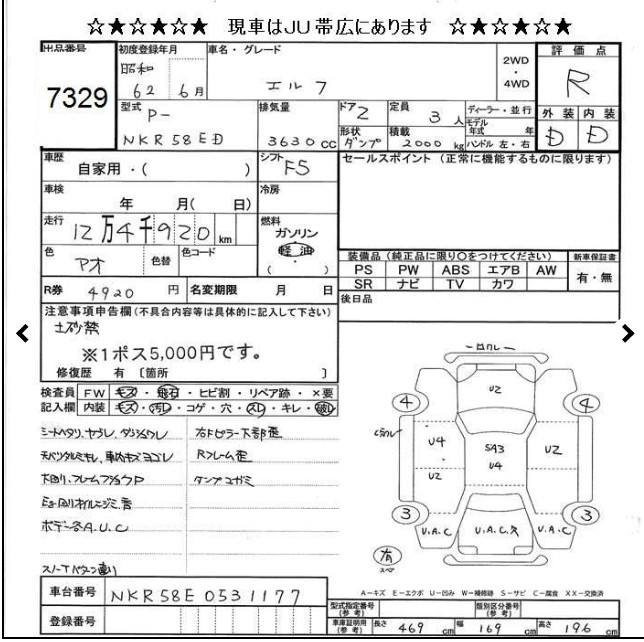 ☆★☆★☆★ 現車はJU帯広にあります ☆★☆★☆★
出品番号 7329
初度登録年月 昭和 62 6月
車名・グレード エルフ
2WD・4WD
評価点 R
外装 内装 D D
型式 P- NKR58ED
排気量 3630cc
ドア 2
形状 ダンプ
定員 3人
積載 2000kg
ディーラー・並行
モデル年式 年
ハンドル 左・右
車歴 自家用・( )
シフト F5
セールスポイント (正常に機能するものに限ります)
車検 年 月( 日)
冷房
走行 12万4千920km
燃料 ガソリン・軽油 ( )
色 アオ 色替 色コード
装備品(純正品に限り○をつけてください)
新車保証書 有・無
PS PW ABS エアB AW
SR ナビ TV カワ
R券 4920円 名変期限 月 日
後日品
注意事項申告欄(不具合内容等は具体的に記入して下さい)
土砂禁
※1ポス5,000円です。
修復歴 有 〔箇所 〕
検査員記入欄
FW キズ・飛石・ヒビ割・リペア跡・×要
内装 キズ・汚レ・コゲ・穴・スレ・キレ・破レ
シートヘタリ、ヤブレ、ダッシュワレ
右Fピラー下部歪
Rフレーム歪
ダンプユガミ
Egオイルニジミ、音
ボデー各A.U.C
有
4 4 3 3
U2
U4 U2
SA3 U4
U2
U.A.C
U.A.C.X
U.A.C
A-キズ E-エクボ U-凹み W-補修跡 S-サビ C-腐食 XX-交換済
車台番号 NKR58E0531177
登録番号
型式指定番号(参考)
類別区分番号(参考)
車庫証明用(参考) 長さ 469cm 幅 169cm 高さ 196cm